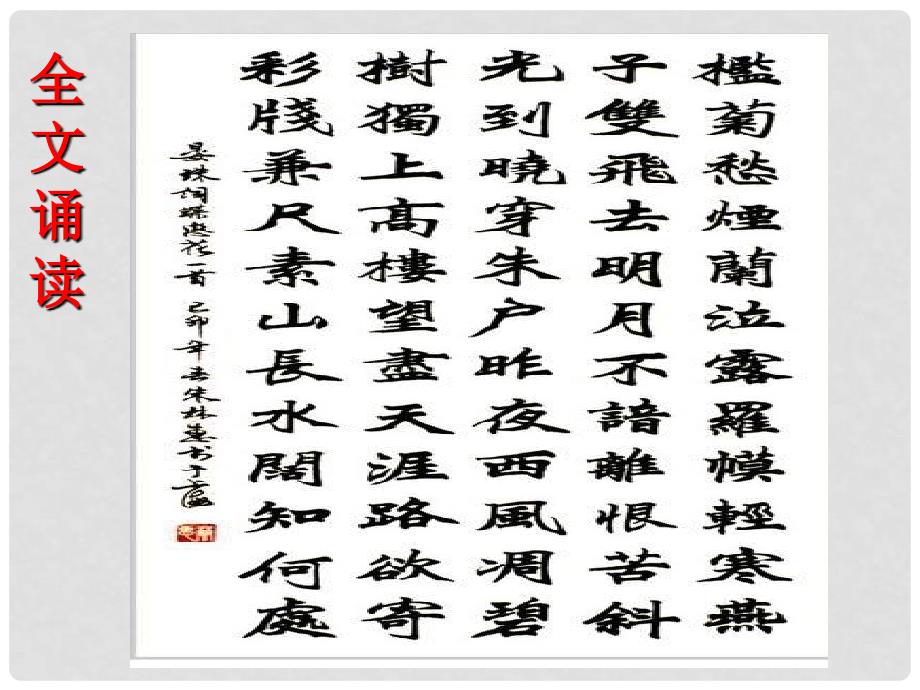 全文诵读
檻菊愁煙蘭泣露羅幙輕寒燕
子雙飛去明月不諳離恨苦斜
光到曉穿朱户昨夜西風凋碧
樹獨上高樓望盡天涯路欲寄
彩牋兼尺素山長水闊知何處
晏殊词蝶恋花一首 己卯年春朱林惠书于上海